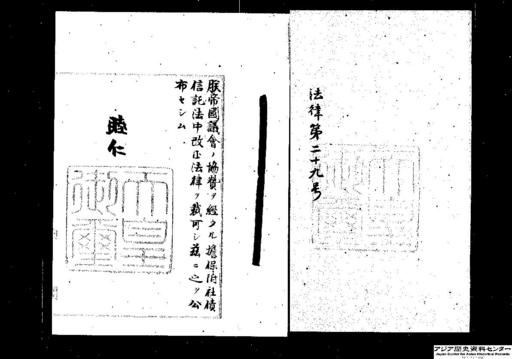 法律第二十九号
朕帝國議會ノ協賛ヲ經タル擔保附社債
信託法中改正法律ヲ裁可シ茲ニ之ヲ公
布セシム
睦仁
天皇
御璽
アジア歴史資料センター
Japan Center for Asian Historical Records